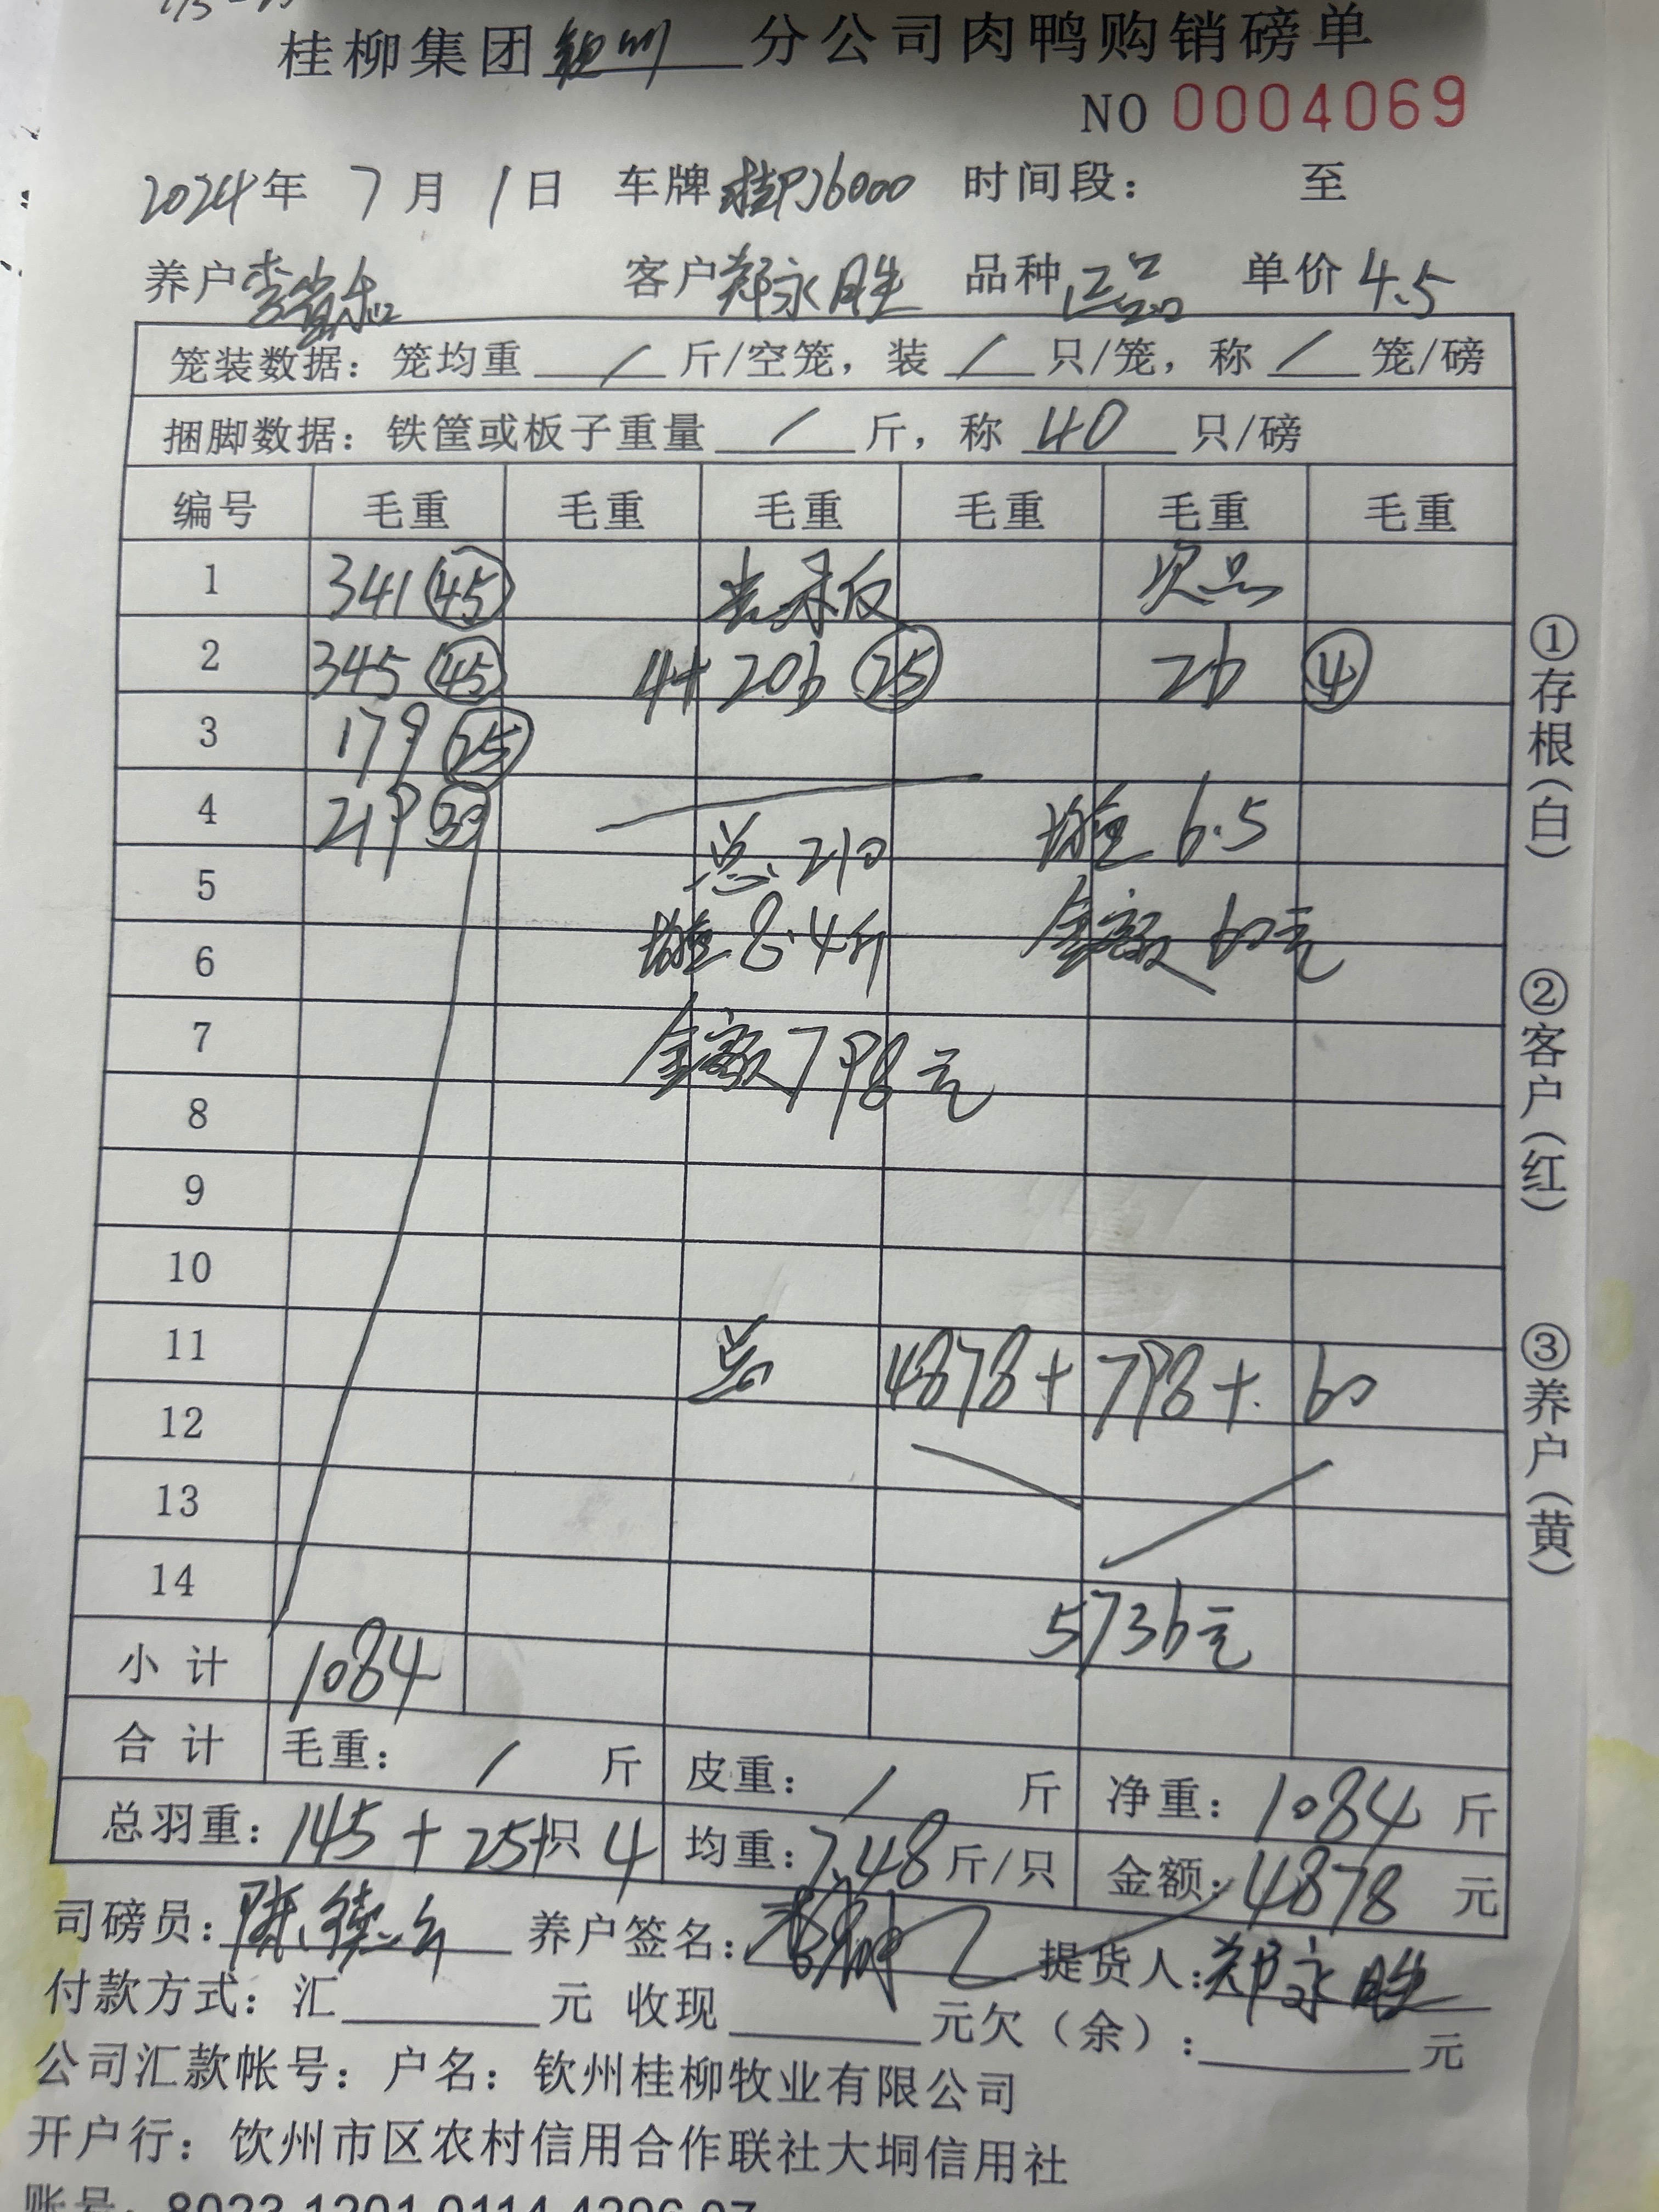 桂柳集团钦州分公司肉鸭购销磅单
NO 0004069
2024年 7月 1日 车牌 时间段： 至
养户 客户郑永胜 品种正品 单价4.5
笼装数据：笼均重 / 斤/空笼，装 / 只/笼，称 / 笼/磅
捆脚数据：铁筐或板子重量 / 斤，称 40 只/磅
编号 毛重 毛重 毛重 毛重 毛重 毛重
1 341 45 次品
2 345 45 4+206 25 26 4
3 179 25
4 219 30 总 210 均重 6.5
5
6 均重8.4斤 金额 60元
7 金额798元
8
9
10
11 总 4878+798+60
12
13
14 5736元
小计 1084
合计 毛重： / 斤 皮重： / 斤 净重：1084斤
总羽重：145+25+只4 均重：7.48斤/只 金额：4878元
司磅员： 养户签名： 提货人：郑永胜
付款方式：汇 元 收现 元欠（余）： 元
公司汇款帐号：户名：钦州桂柳牧业有限公司
开户行：钦州市区农村信用合作联社大垌信用社
①存根（白）
②客户（红）
③养户（黄）